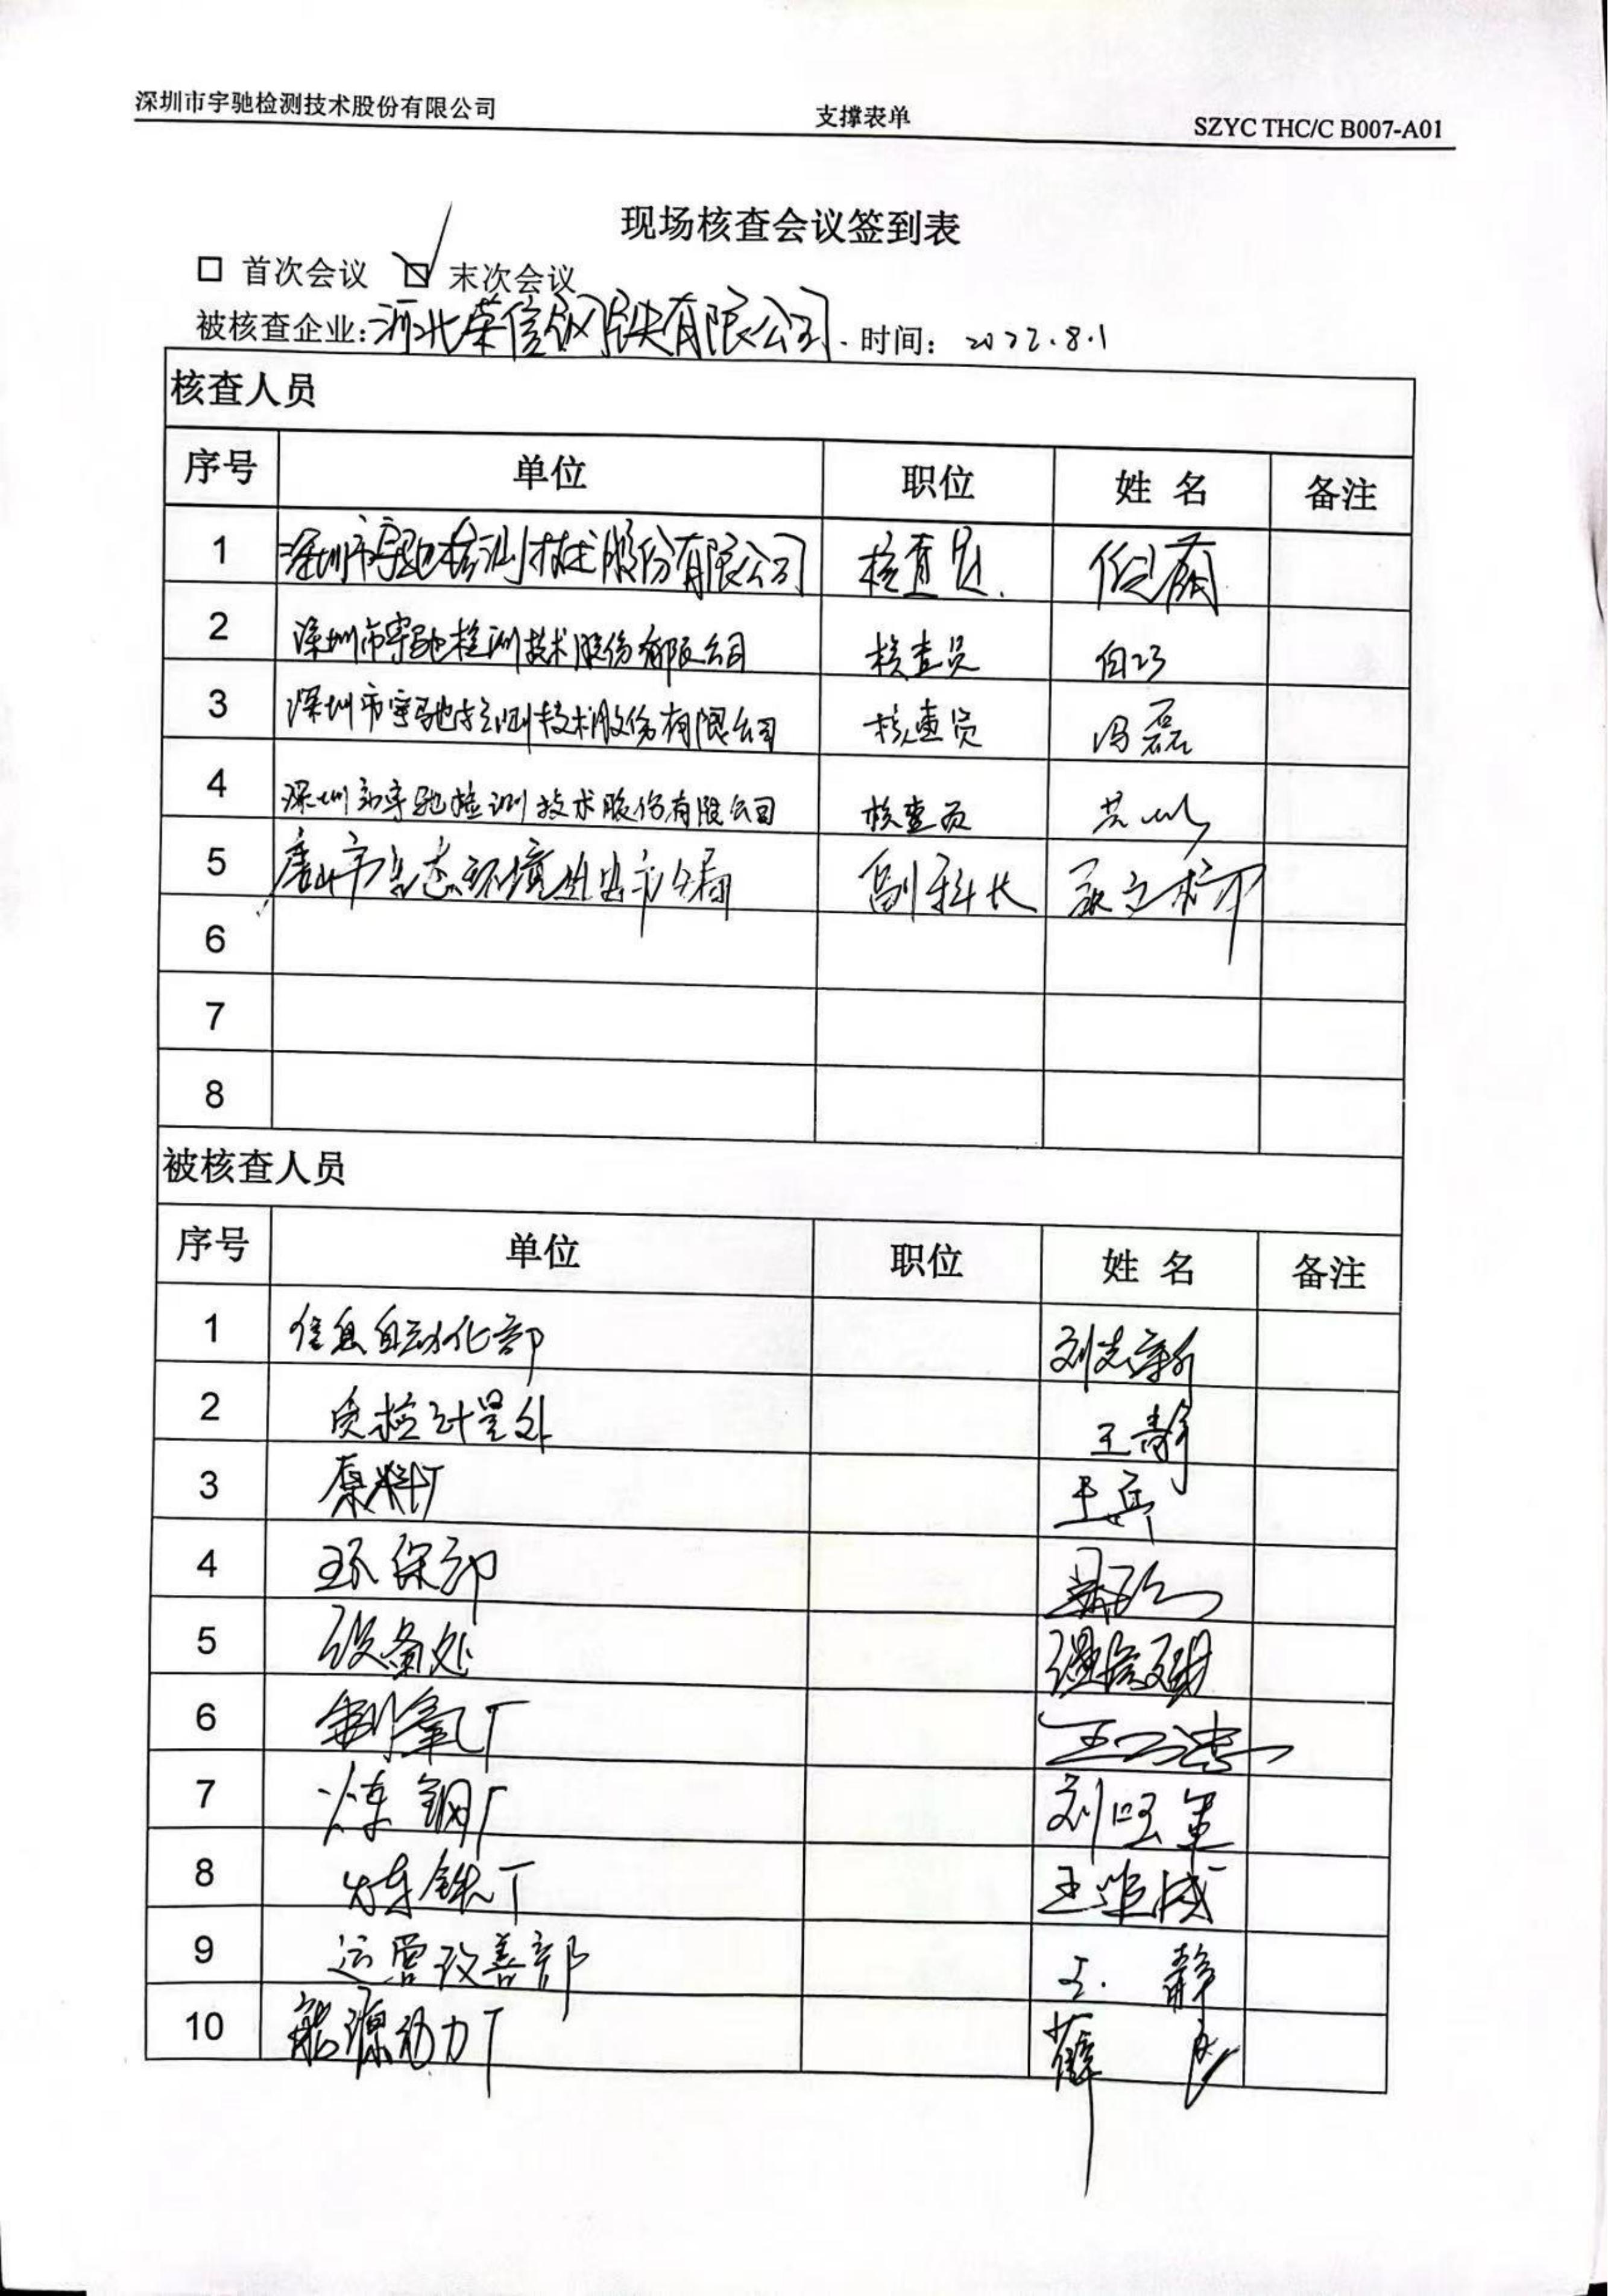 深圳市宇驰检测技术股份有限公司 支撑表单 SZYC THC/C B007-A01
现场核查会议签到表
□ 首次会议 ☑ 末次会议
被核查企业:河北荣信钢铁有限公司 时间: 2022.8.1
核查人员
序号 单位 职位 姓名 备注
1 深圳市宇驰检测技术股份有限公司 核查员
2 深圳市宇驰检测技术股份有限公司 核查员
3 深圳市宇驰检测技术股份有限公司 核查员 冯磊
4 深圳市宇驰检测技术股份有限公司 核查员
5 唐山市生态环境 市分局 副科长
6
7
8
被核查人员
序号 单位 职位 姓名 备注
1 信息自动化部
2 质检计量处 王静
3 原料厂 王兵
4 环保部
5 设备处
6 制氧厂
7 炼钢厂 刘旺军
8 炼铁厂 王唯成
9 运营改善部 王静
10 能源动力厂 薛